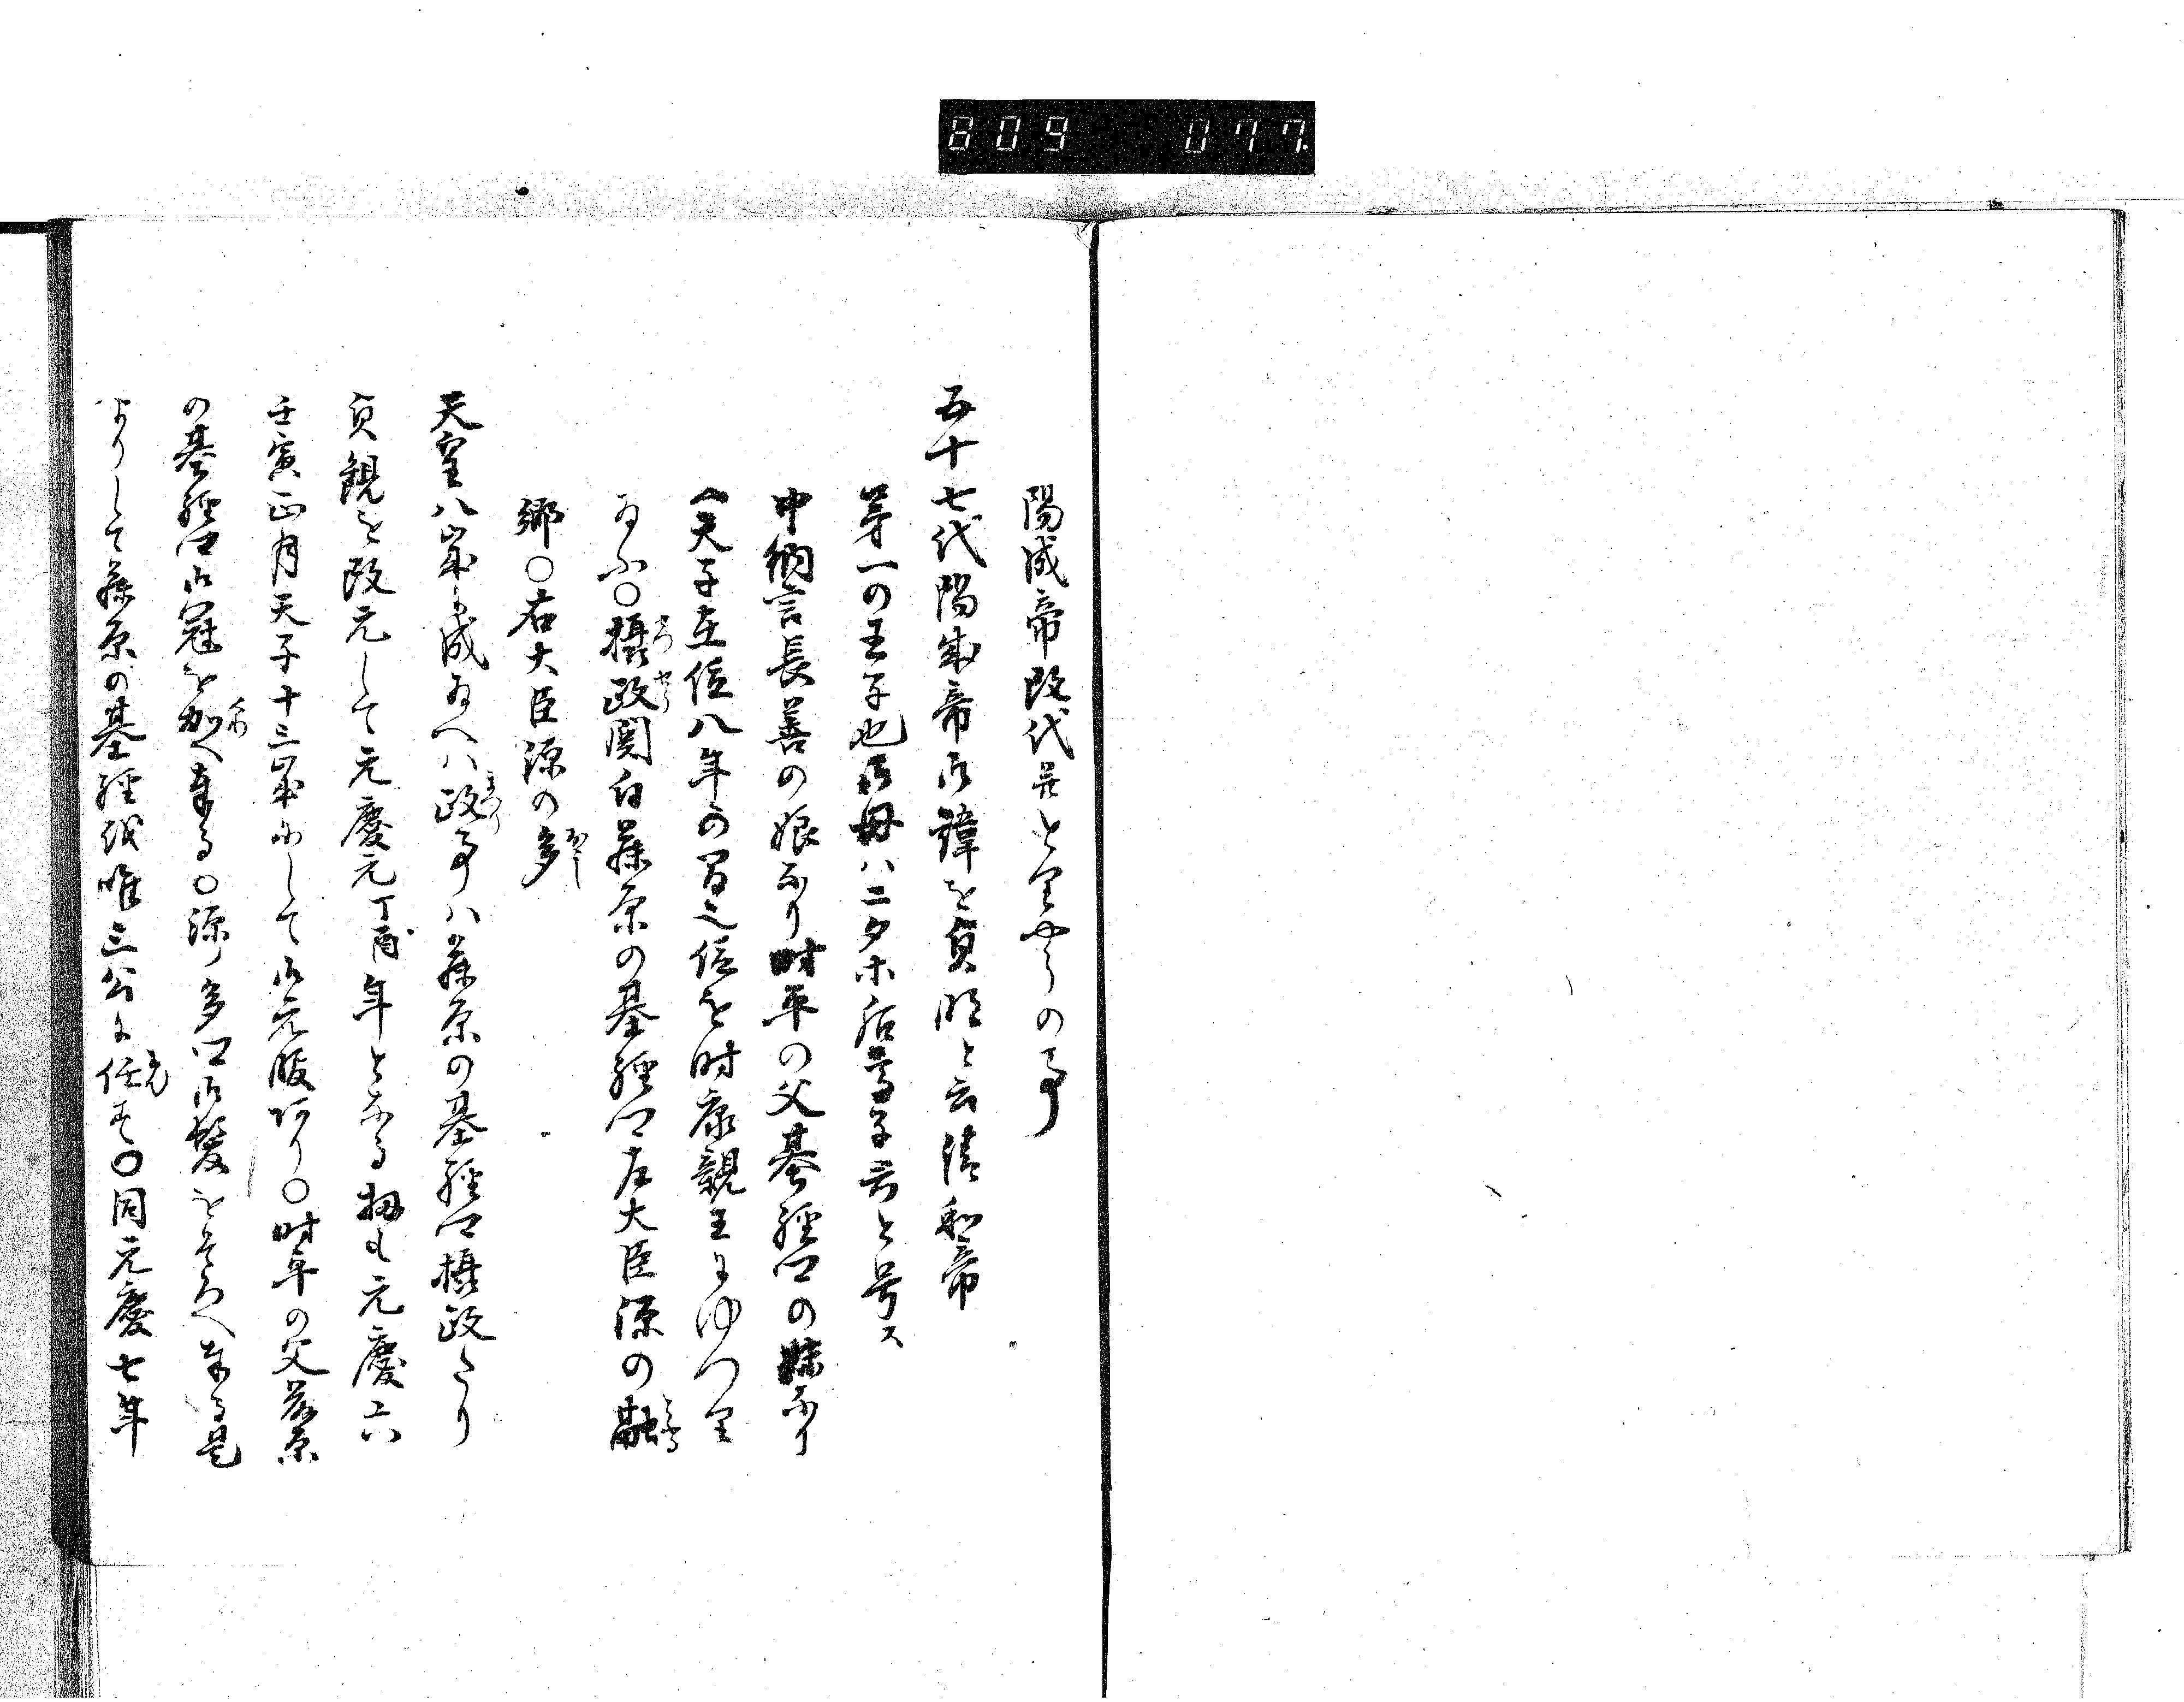 809 077.
陽成帝改代并とりやりの事
五十七代陽成帝御諱を貞明と云清和帝
第一の王子也御母ハ二タ条后高子云と号ス
中納言長善の娘なり時平の父基経口の妹なり
天子在位八年の間也位を時康親王にゆつり
給ふ〇摂政関白藤原の基経口左大臣源の融
郷〇右大臣源の多
天皇八歳ニ成給へハ政事ハ藤原の基経口摂政たり
貞観を改元して元慶元丁酉年となる扨も元慶六
壬寅正月天子十三歳にして御元服あり〇時平の父藤原
の基経口御冠を加へ奉る〇源ノ多口御髪をそろへ奉る是
よりして藤原の基経従唯三公に任す〇同元慶七年